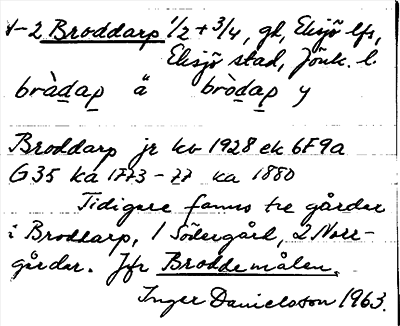 1-2 Broddarp 1/2 + 3/4, gd, Eksjö lfs,
Eksjö stad, Jönk. l.
bròdap ä bròdap y
Broddarp jr kv 1928 ek 6F9a
G35 ka 1773-77 ka 1880
Tidigare fanns tre gårdar
i Broddarp, 1 Södergård, 2 Norr-
gårdar. Jfr Broddemålen.
Inger Danielsson 1963.